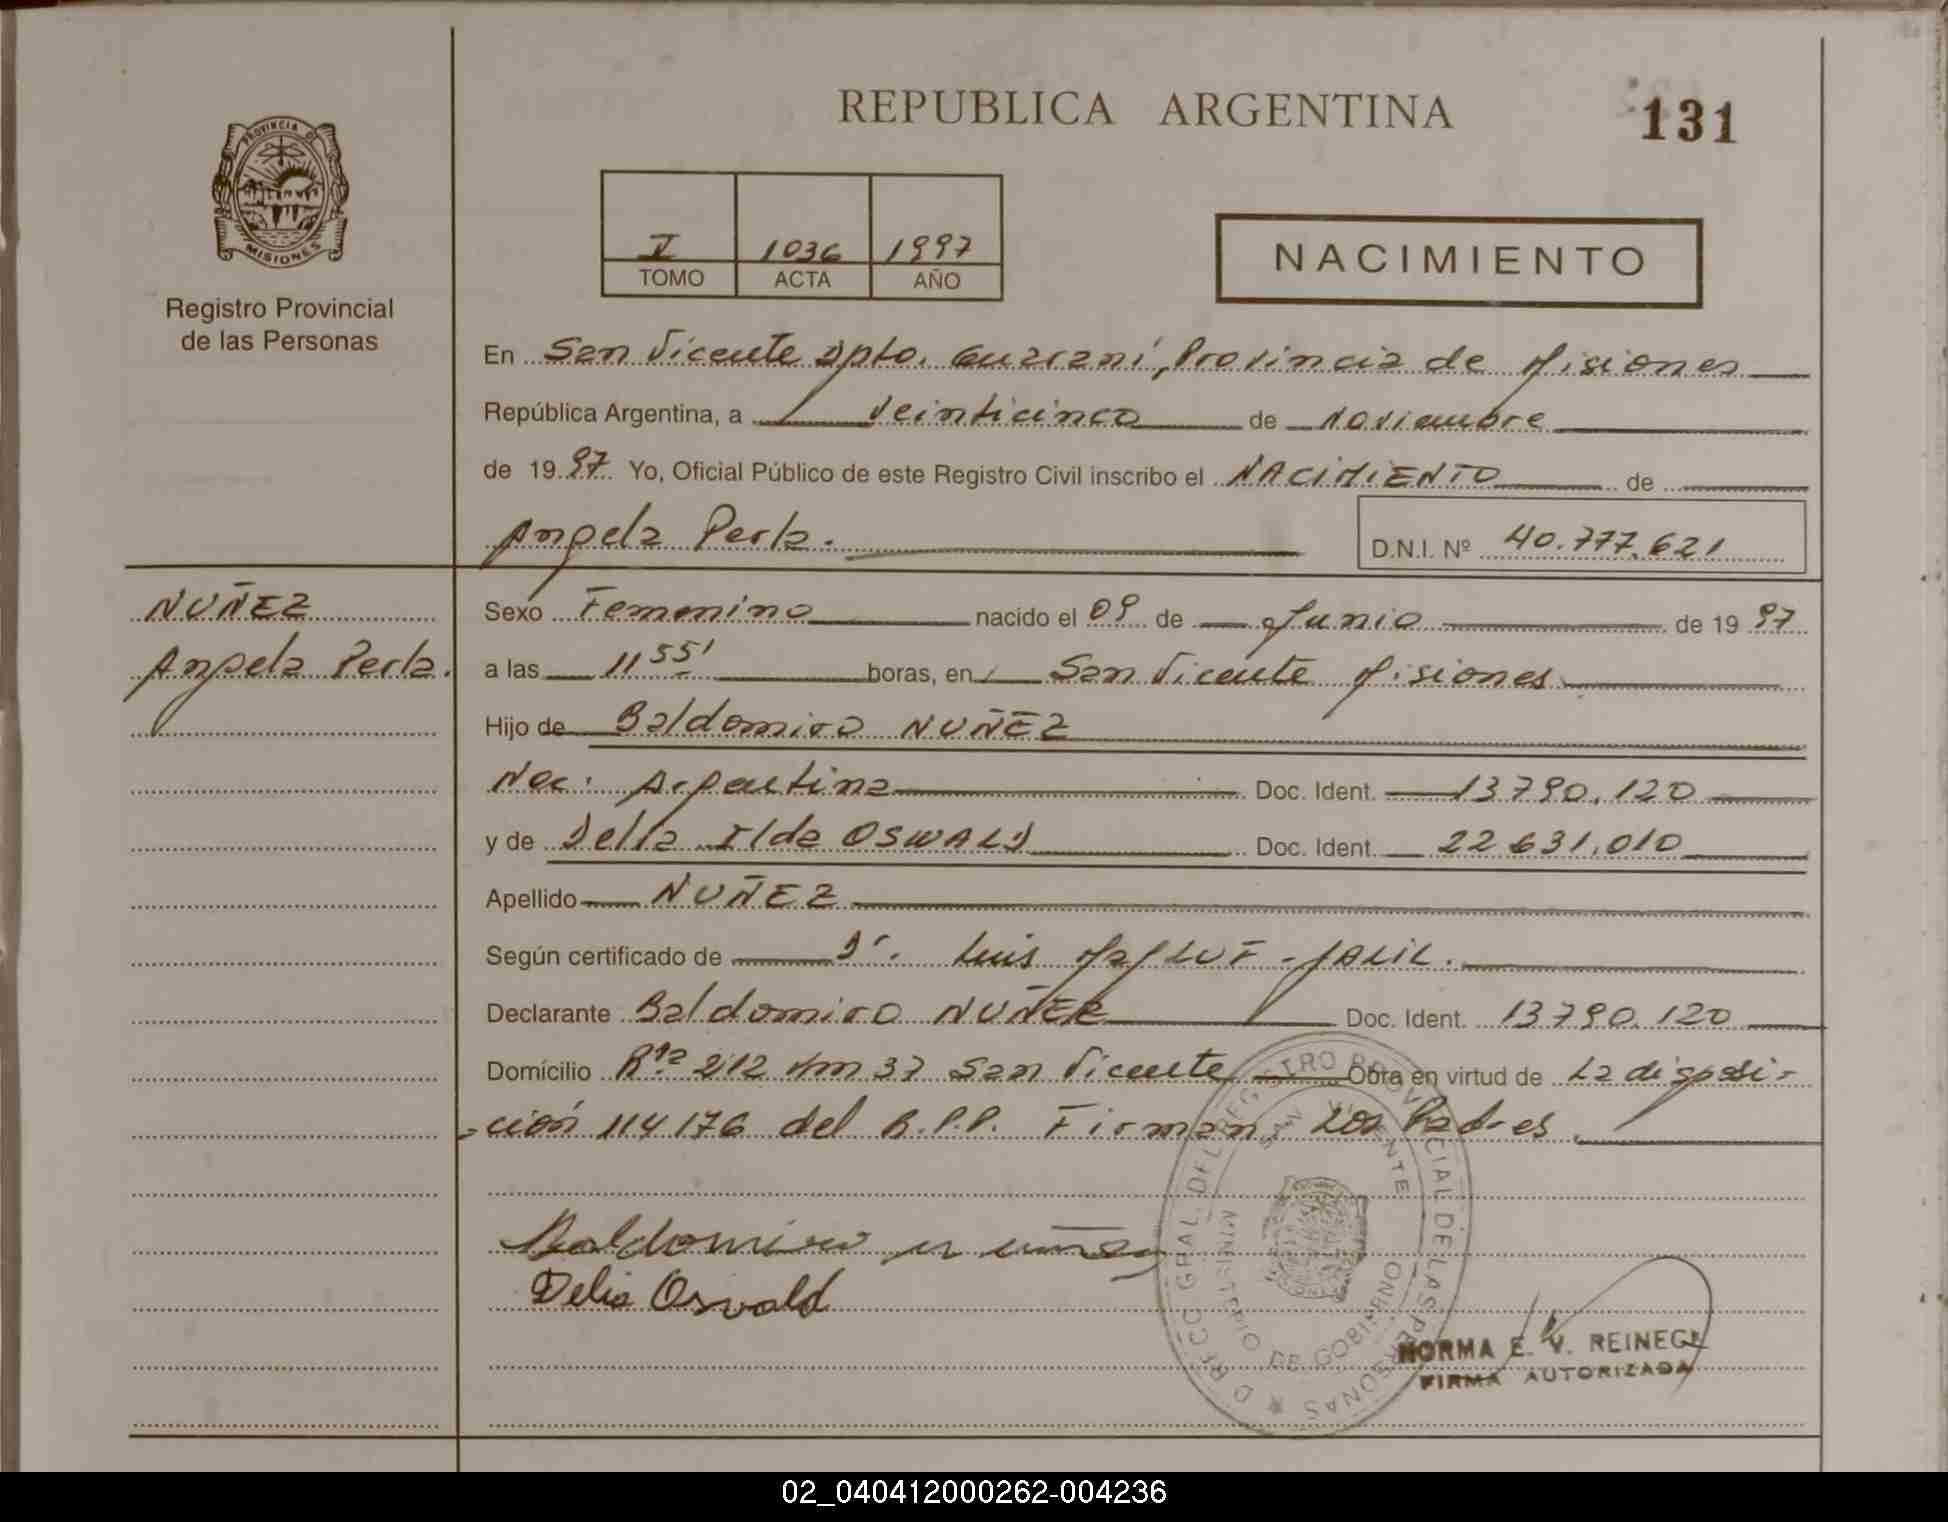 REPUBLICA ARGENTINA
131
PROVINCIA DE
MISIONES
Registro Provincial
de las Personas
V 1036 1997
TOMO ACTA AÑO
NACIMIENTO
En San Vicente Dpto. Guaraní, Provincia de Misiones
República Argentina, a veinticinco de Noviembre
de 1997 Yo, Oficial Público de este Registro Civil inscribo el NACIMIENTO de
Angela Perla.
D.N.I. Nº 40.777.621
NUÑEZ
Angela Perla.
Sexo Femenino nacido el 09 de Junio de 1997
a las 11 55' horas, en San Vicente Misiones
Hijo de Baldomiro NUÑEZ
Nac: Argentina Doc. Ident. 13790.120
y de Delia Ilda OSWALD Doc. Ident. 22 631.010
Apellido NUÑEZ
Según certificado de Dr. Luis JALIL.
Declarante Baldomiro NUÑEZ Doc. Ident. 13790.120
Domicilio Rta 212 Km 37 San Vicente Obra en virtud de La disposi-
-ción 114176 del R.P.P. Firman Los Padres
Baldomiro nuñez
Delia Osvald
DIRECC GRAL. DEL REGISTRO PROVINCIAL DE LAS PERSONAS
SAN VICENTE
MINISTERIO DE GOBIERNO
NORMA E. V.
FIRMA AUTORIZADA
02_040412000262-004236